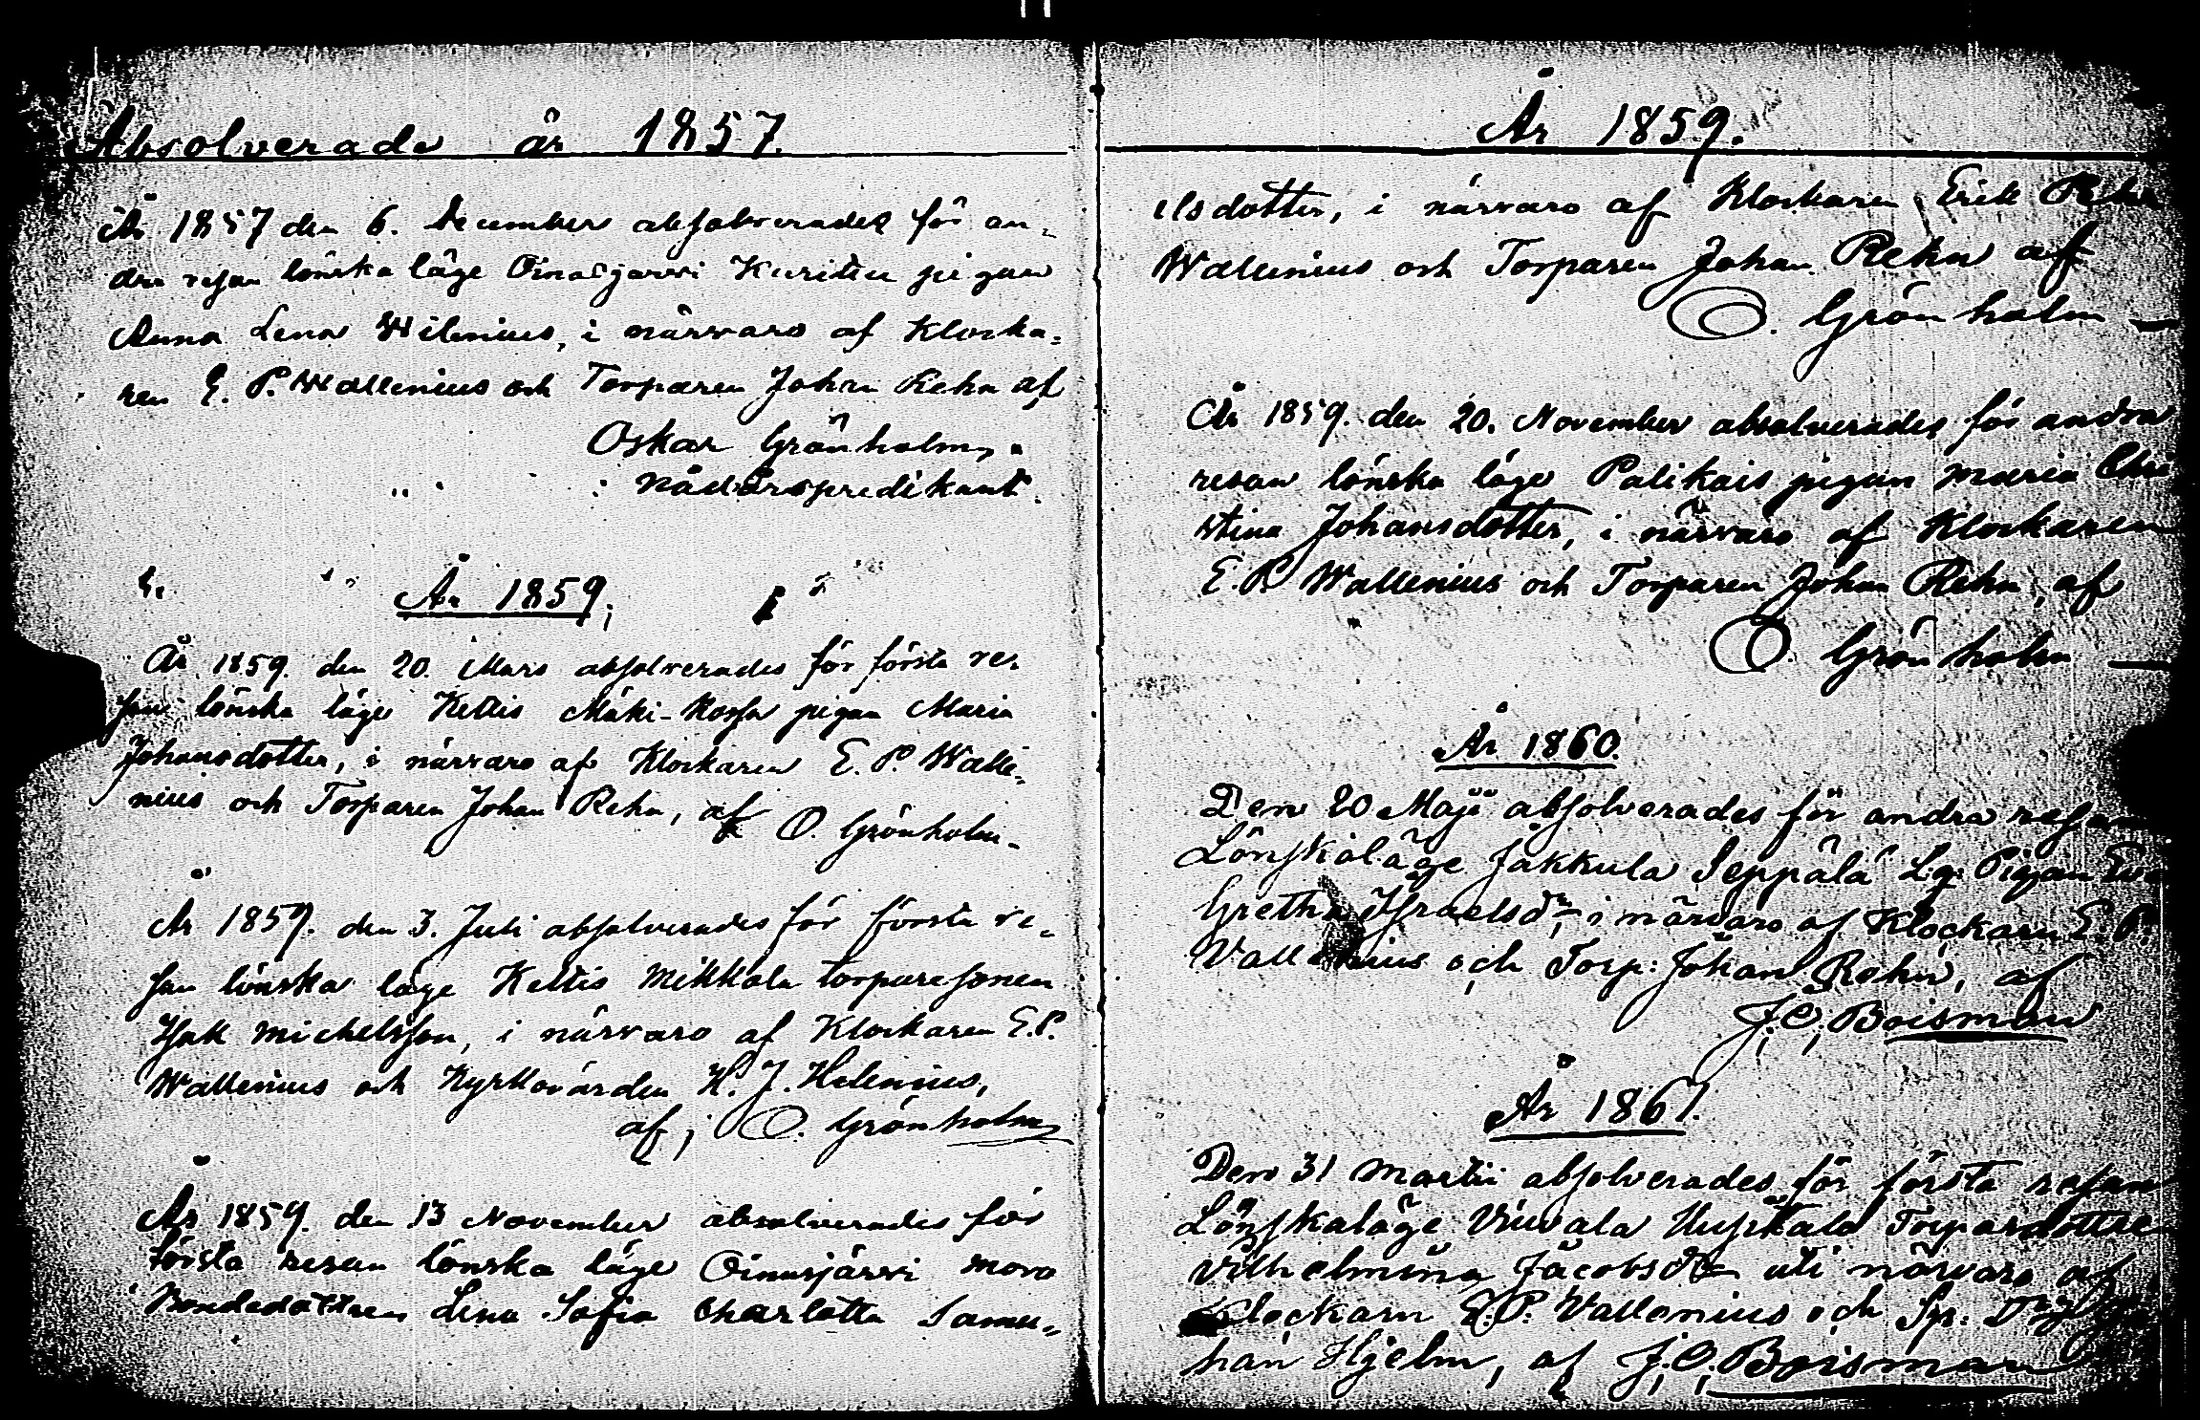 Absolverade år 1857.
År 1857 den 6. December absolverades för an-
dra resan lönska läge Oinasjärvi pigan
Anna Lena Wilenius, i närvaro af Klocka-
ren E. P. Wallenius och Torparen Johan Rehn af
Oskar Grönholm,
nådårspredikant.
År 1859.
År 1859. den 20. Mars absolverades för första re-
san lönska läge Kettis Mäki-Korsu pigan Maria
Johansdotter, i närvaro af Klockaren E. P. Walle-
nius och Torparen Johan Rehn, af O. Grönholm.
År 1859. den 3. Juli absolverades för första re-
san lönska läge Kettis Mikkola torparesonen
Isak Michelsson, i närvaro af Klockaren E. P.
Wallenius och Kyrkovärden H. J. Helenius,
af, O. Grönholm
År 1859. den 13 November absolverades för
första resan lönska läge Oinasjärvi
Bondedottren Lena Sofia Charlotta Samu-
År 1859.
elsdotter, i närvaro af Klockaren Erik
Wallenius och Torparen Johan Rehn af
O. Grönholm
År 1859. den 20. November absolverades för andra
resan lönska läge Palikais pigan Maria Chri
stina Johansdotter, i närvaro af Klockaren
E. P. Wallenius och Torparen Johan Rehn, af
O. Grönholm
År 1860.
Den 20 Maji absolverades för andra resan
Lönskaläge Jakkula Seppälä Pigan Eva
Gretha Israelsdr, i närvaro af Klockarn E. P.
Vallenius och Torp: Johan Rehn, af
J. C. Boisman
År 1861.
Den 31 Martii absolverades för första resan
Lönskaläge Torpardottre
Vilhelmina Jacobsdr uti närvaro af
Klockarn E. P. Vallenius och
han Hjelm, af J. C. Boisman